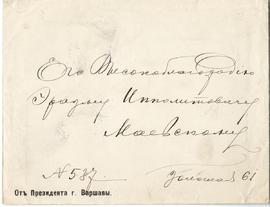 Его Высокоблагородію
Эразму Ипполитовичу
Маевскому
N 587.
Золотая 61
Отъ Президента г. Варшавы.